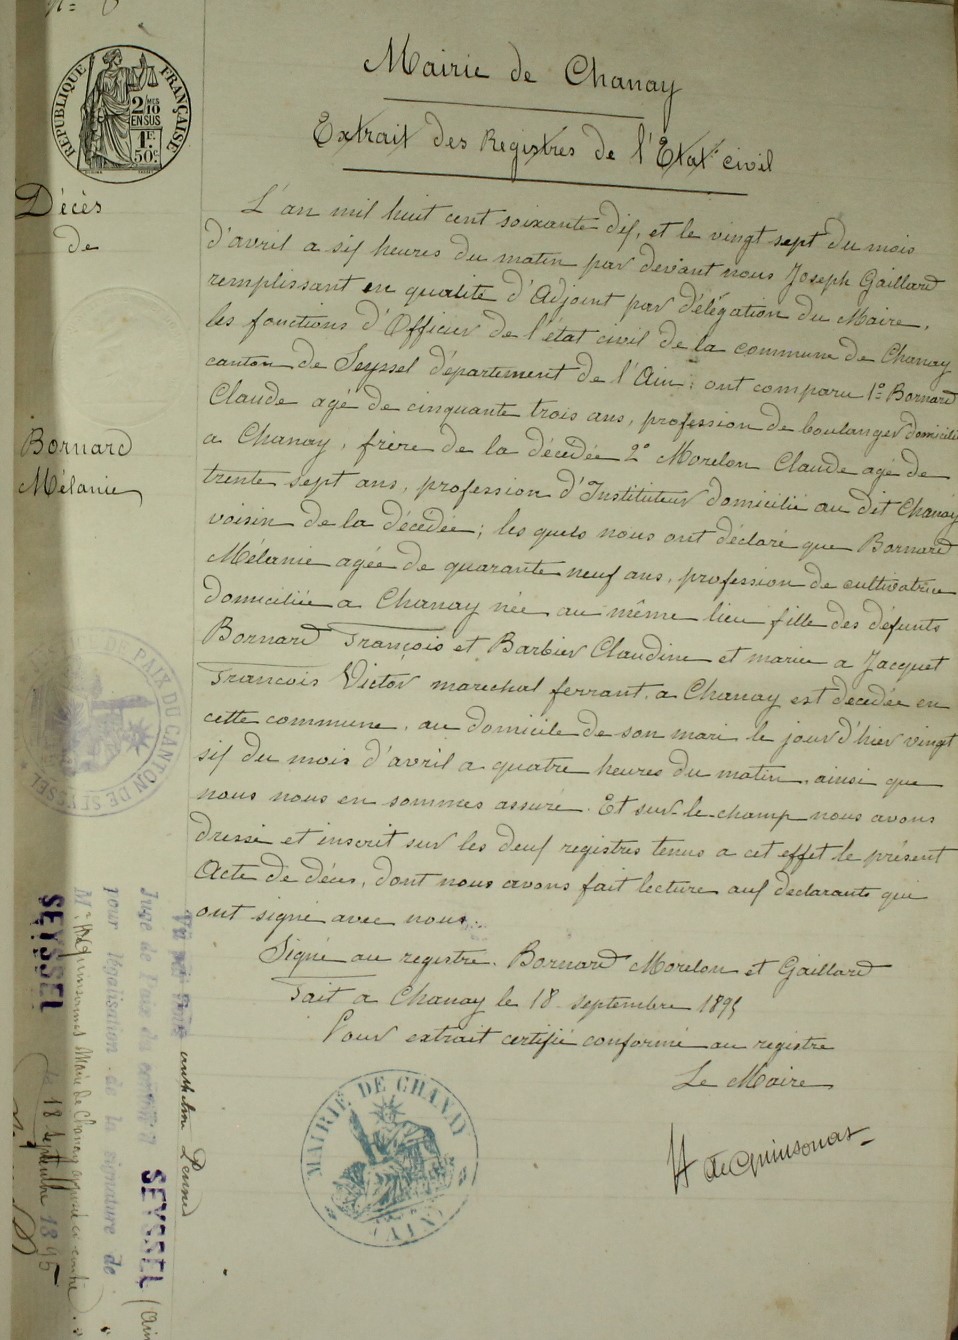 Mairie de Chanay
Extrait des Registres de l'Etat civil
RÉPUBLIQUE FRANÇAISE
2/10
EN SUS
1F.
50c.
Décès
de
Bornard
Mélanie
L'an mil huit cent soixante dix, et le vingt sept du mois
d'avril a six heures du matin par devant nous Joseph Gaillard
remplissant en qualité d'Adjoint par délégation du Maire,
les fonctions d'Officier de l'état civil de la commune de Chanay
canton de Seyssel département de l'Ain; ont comparu 1º Bornard
Claude agé de cinquante trois ans, profession de boulanger domicilié
a Chanay, frère de la décédée 2º Morelon Claude agé de
trente sept ans, profession d'Instituteur domicilié au dit Chanay
voisin de la décédée; les quels nous ont déclaré que Bornard
Mélanie agée de quarante neuf ans, profession de cultivatrice
domiciliée a Chanay née au même lieu fille des défunts
Bornard François et Barbier Claudine et mariée a Jacquet
François Victor marechal ferrant, a Chanay est décédée en
cette commune, au domicile de son mari le jour d'hier vingt
six du mois d'avril a quatre heures du matin, ainsi que
nous nous en sommes assuré. Et sur le champ nous avons
dressé et inscrit sur les deux registres tenus a cet effet le présent
Acte de décès, dont nous avons fait lecture aux declarants qui
ont signé avec nous.
Signé au registre. Bornard Morelon et Gaillard
Fait a Chanay le 18 septembre 1895
Pour extrait certifié conforme au registre
Le Maire
H de Quinsonas
MAIRIE DE CHANAY
(AIN)
DE PAIX DU CANTON DE SEYSSEL
Vu par nous
Juge de Paix du canton d SEYSSEL (Ain
pour légalisation de la signature de
M. de Quinsonas Maire de Chanay apposée ci contre
SEYSSEL le 18 septembre 1895